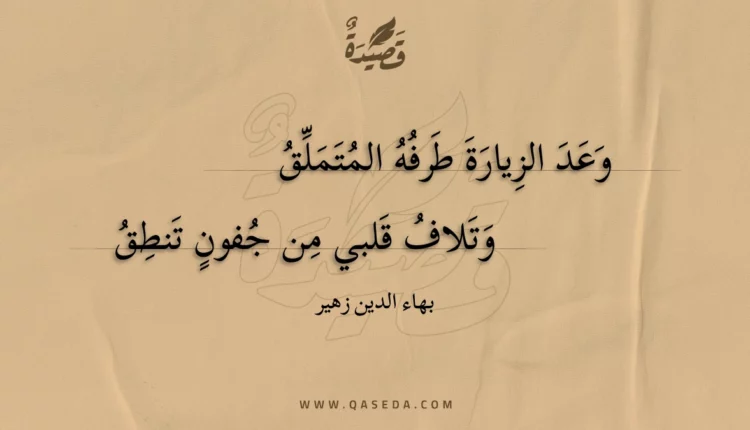 قَصِيدَةٌ
وَعَدَ الزِيارَةَ طَرفُهُ المُتَمَلِّقُ
وَتَلافُ قَلبي مِن جُفونٍ تَنطِقُ
بهاء الدين زهير
WWW.QASEDA.COM